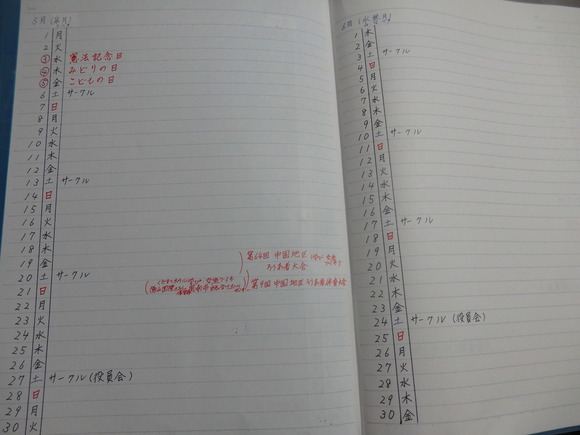 5月(皐月)
1 月
2 火
③ 水 憲法記念日
④ 木 みどりの日
⑤ 金 こどもの日
6 土 サークル
7 日
8 月
9 火
10 水
11 木
12 金
13 土 サークル
14 日
15 月
16 火
17 水
18 木
19 金 第64回 中国地区
ろうあ者大会
20 土 サークル
21 日 第9回 中国地区 ろうあ者
22 月
23 火
24 水
25 木
26 金
27 土 サークル(役員会)
28 日
29 月
30 火
6月(水無月)
1 木
2 金
3 土 サークル
4 日
5 月
6 火
7 水
8 木
9 金
10 土 サークル
11 日
12 月
13 火
14 水
15 木
16 金
17 土 サークル
18 日
19 月
20 火
21 水
22 木
23 金
24 土 サークル(役員会)
25 日
26 月
27 火
28 水
29 木
30 金